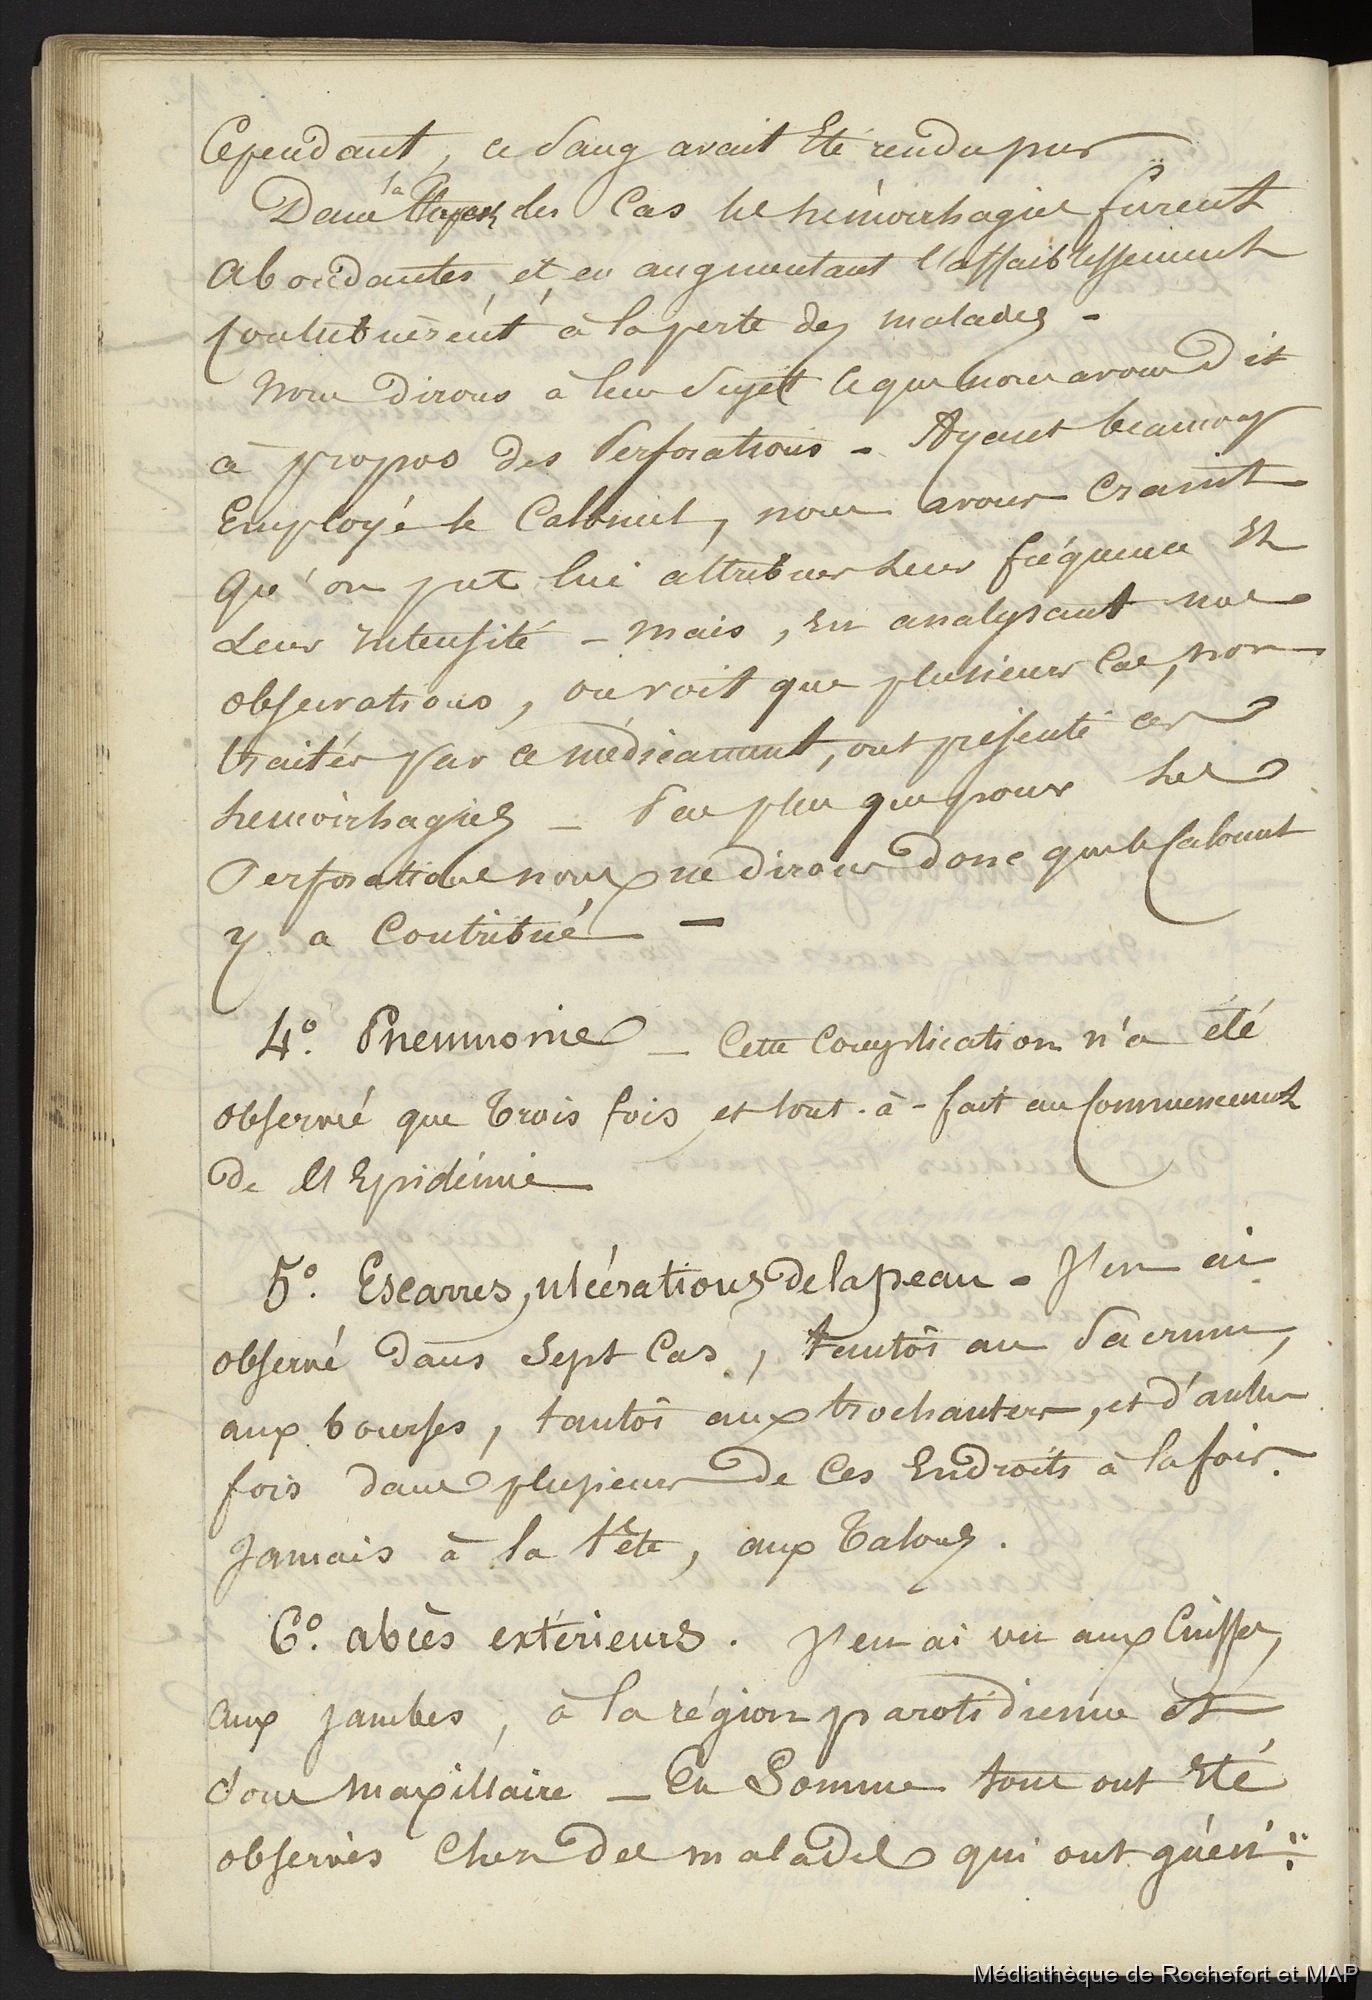 Cependant, ce sang avait Eté rendu pur
Dans la des Cas les hémorrhagies furent
Abondantes, et, en augmentant l'affaiblissement
Contribuèrent à la perte des malades -
Nous Dirons à leur Sujet ce que nous avons Dit
à propos des Perforations - Ayant beaucoup
Employé le Calomel, nous avons Craint
Qu'on put lui attribuer leur fréquence Et
Leur Intensité - mais, En analysant nos
observations, on voit que plusieurs Cas, non
traités par ce médicament, ont présenté ces
hemorrhagies - Pas plus que pour les
Perforations nous ne dirons donc que le Calomel
y a Contribué -
4º. Pneumonie - Cette Complication n'a été
observé que Trois fois et tout-à-fait au Commencement
De l'Epidémie
5º. Escarres, ulcérations de la peau - J'en ai
observé dans Sept Cas, tantôt au Sacrum,
aux bourses, tantôt aux trochanters, et d'autres
fois dans plusieurs de Ces Endroits à la fois.
Jamais à la tête, aux Talons.
6º. abcès extérieurs. J'en ai vu aux Cuisses,
aux jambes, à la région parotidienne et
sous maxillaire - En Somme tous ont Eté
observés Chez Des malades qui ont guéri.
Médiathèque de Rochefort et MAP